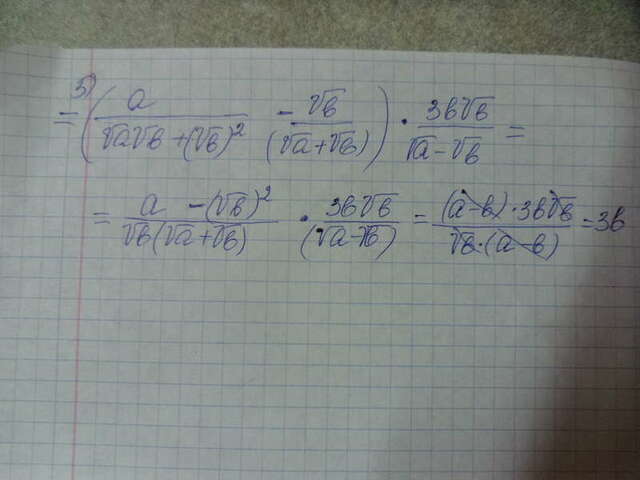 3)
= (a/(√a√b + (√b)²) - √b/(√a + √b)) · 3b√b/(√a - √b) =
= (a - (√b)²)/(√b(√a + √b)) · 3b√b/(√a - √b) = ((a - b) · 3b√b)/(√b · (a - b)) = 3b